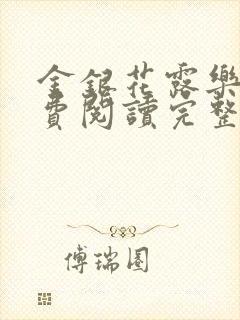 金銀花露樂
費閱讀完整
傅瑞園